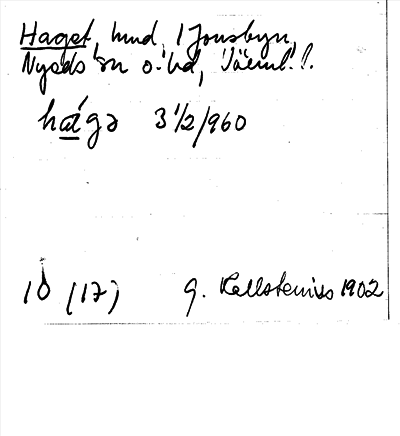 Haget, hund, i Jonsbyn,
Nyeds sn o. hd, Värml. l.
hágə 3 1/2/960
10 (17) G. Kallstenius 1902